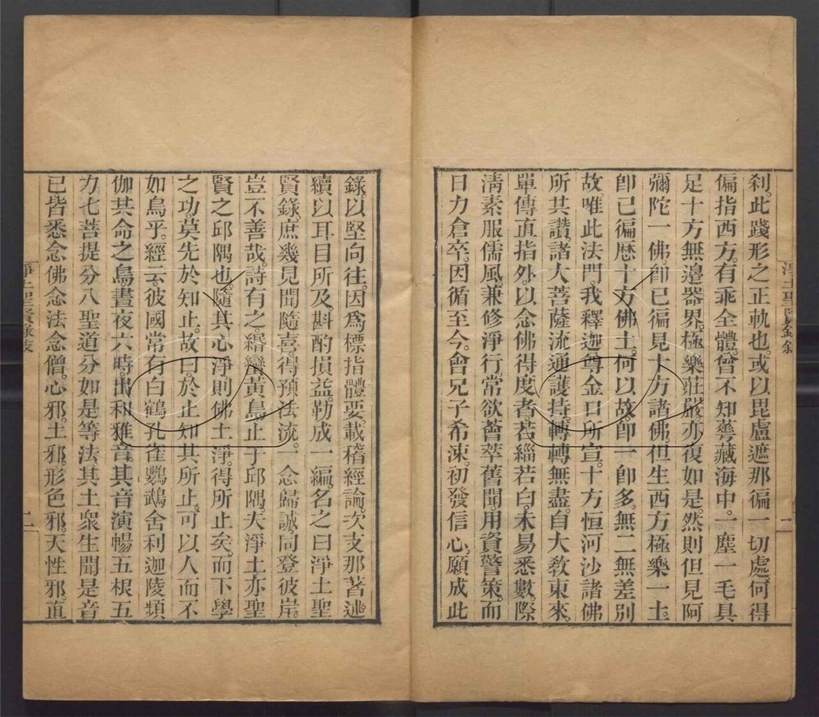 刹。此踐形之正軌也。或以毘盧遮那徧一切處。何得
偏指西方。有乖全體。曾不知華藏海中。一塵一毛。具
足十方無邊器界。極樂莊嚴。亦復如是。然則但見阿
彌陀一佛。卽已徧見十方諸佛。但生西方極樂一土。
卽已徧歷十方佛土。何以故。卽一卽多。無二無差別
故。唯此法門。我釋迦尊金口所宣。十方恒河沙諸佛
所共讚。諸大菩薩流通護持。轉轉無盡。自大敎東來。
單傳直指外。以念佛得度者。若緇若白。未易悉數。際
淸素服儒風。兼修淨行。常欲薈萃舊聞。用資警策。而
日力倉卒。因循至今。會兄子希涑。初發信心。願成此
淨土聖賢錄敘
一
錄。以堅向往。因爲標指體要。載稽經論。次支那著述。
續以耳目所及。斟酌損益。勒成一編。名之曰淨土聖
賢錄。庶幾見聞隨喜。得預法流。一念歸誠。同登彼岸。
豈不善哉。詩有之。緡蠻黃鳥。止于邱隅。夫淨土亦聖
賢之邱隅也。隨其心淨。則佛土淨。得所止矣。而下學
之功。莫先於知止。故曰於止知其所止。可以人而不
如鳥乎。經云。彼國常有白鶴孔雀鸚鵡舍利迦陵頻
伽共命之鳥。晝夜六時。出和雅音。其音演暢五根五
力七菩提分八聖道分如是等法。其土衆生聞是音
已。皆悉念佛念法念僧。心邪。土邪。形色邪。天性邪。直
淨土聖賢錄敘
二